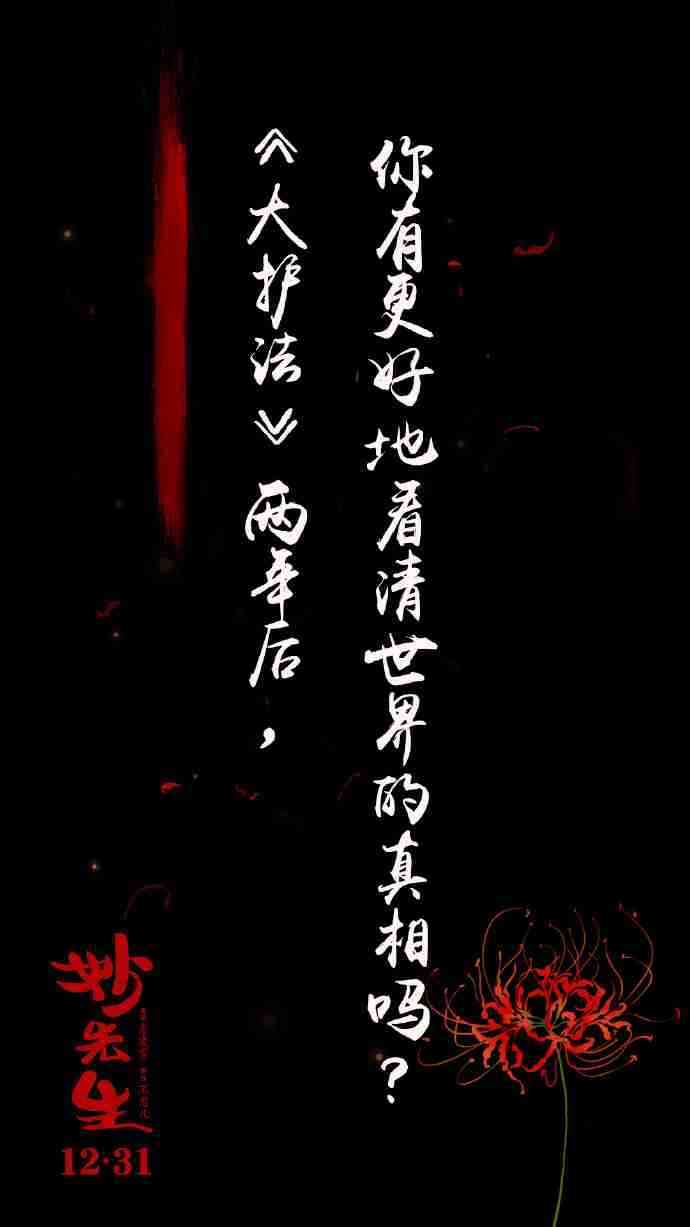 《大护法》两年后，
你有更好地看清世界的真相吗？
妙先生
12·31